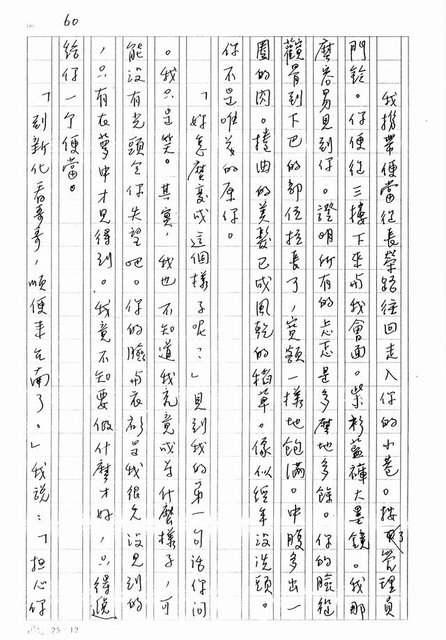 60
我攜帶便當從長榮路往回走入你的小巷。按了管理員
門鈴。你便從三樓下來與我會面。紫衫藍褲大墨鏡。我那
麼容易見到你。證明所有的忐忑是多麼地多餘。你的臉從
觀骨到下巴的部位拉長了，寬額一樣地飽滿。中腹多出一
圈的肉。捲曲的美髮已成風乾的稻草。像似經年沒洗頭。
你不是唯美的原你。
「好怎麼變成這個樣子呢？」見到我的第一句話你問
。我只是笑。其實，我也不知道我究竟成了什麼樣子，可
能沒有光頭令你失望吧。你的臉與衣衫是我很久沒見到的
，只有在夢中才見得到。我竟不知要做什麼才好，只得遞
給你一個便當。
「到新化看哥哥，順便來台南了。」我說：「担心你
25 12